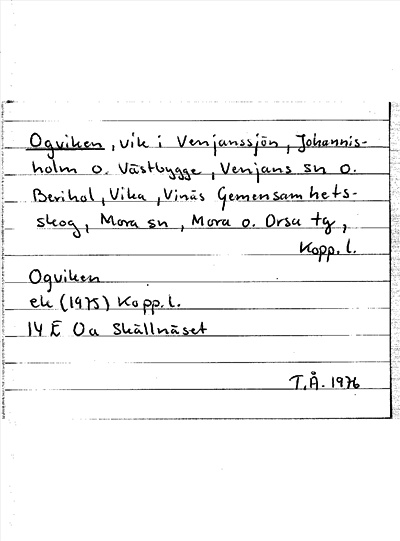 Ogviken, vik i Venjanssjön, Johannis-
holm o. Västbygge, Venjans sn o.
Berihol, Vika, Vinäs Gemensamhets-
skog, Mora sn, Mora o. Orsa tg,
Kopp. l.
Ogviken
ek (1975) Kopp. l.
14 E 0a Skällnäset
T.Å. 1976